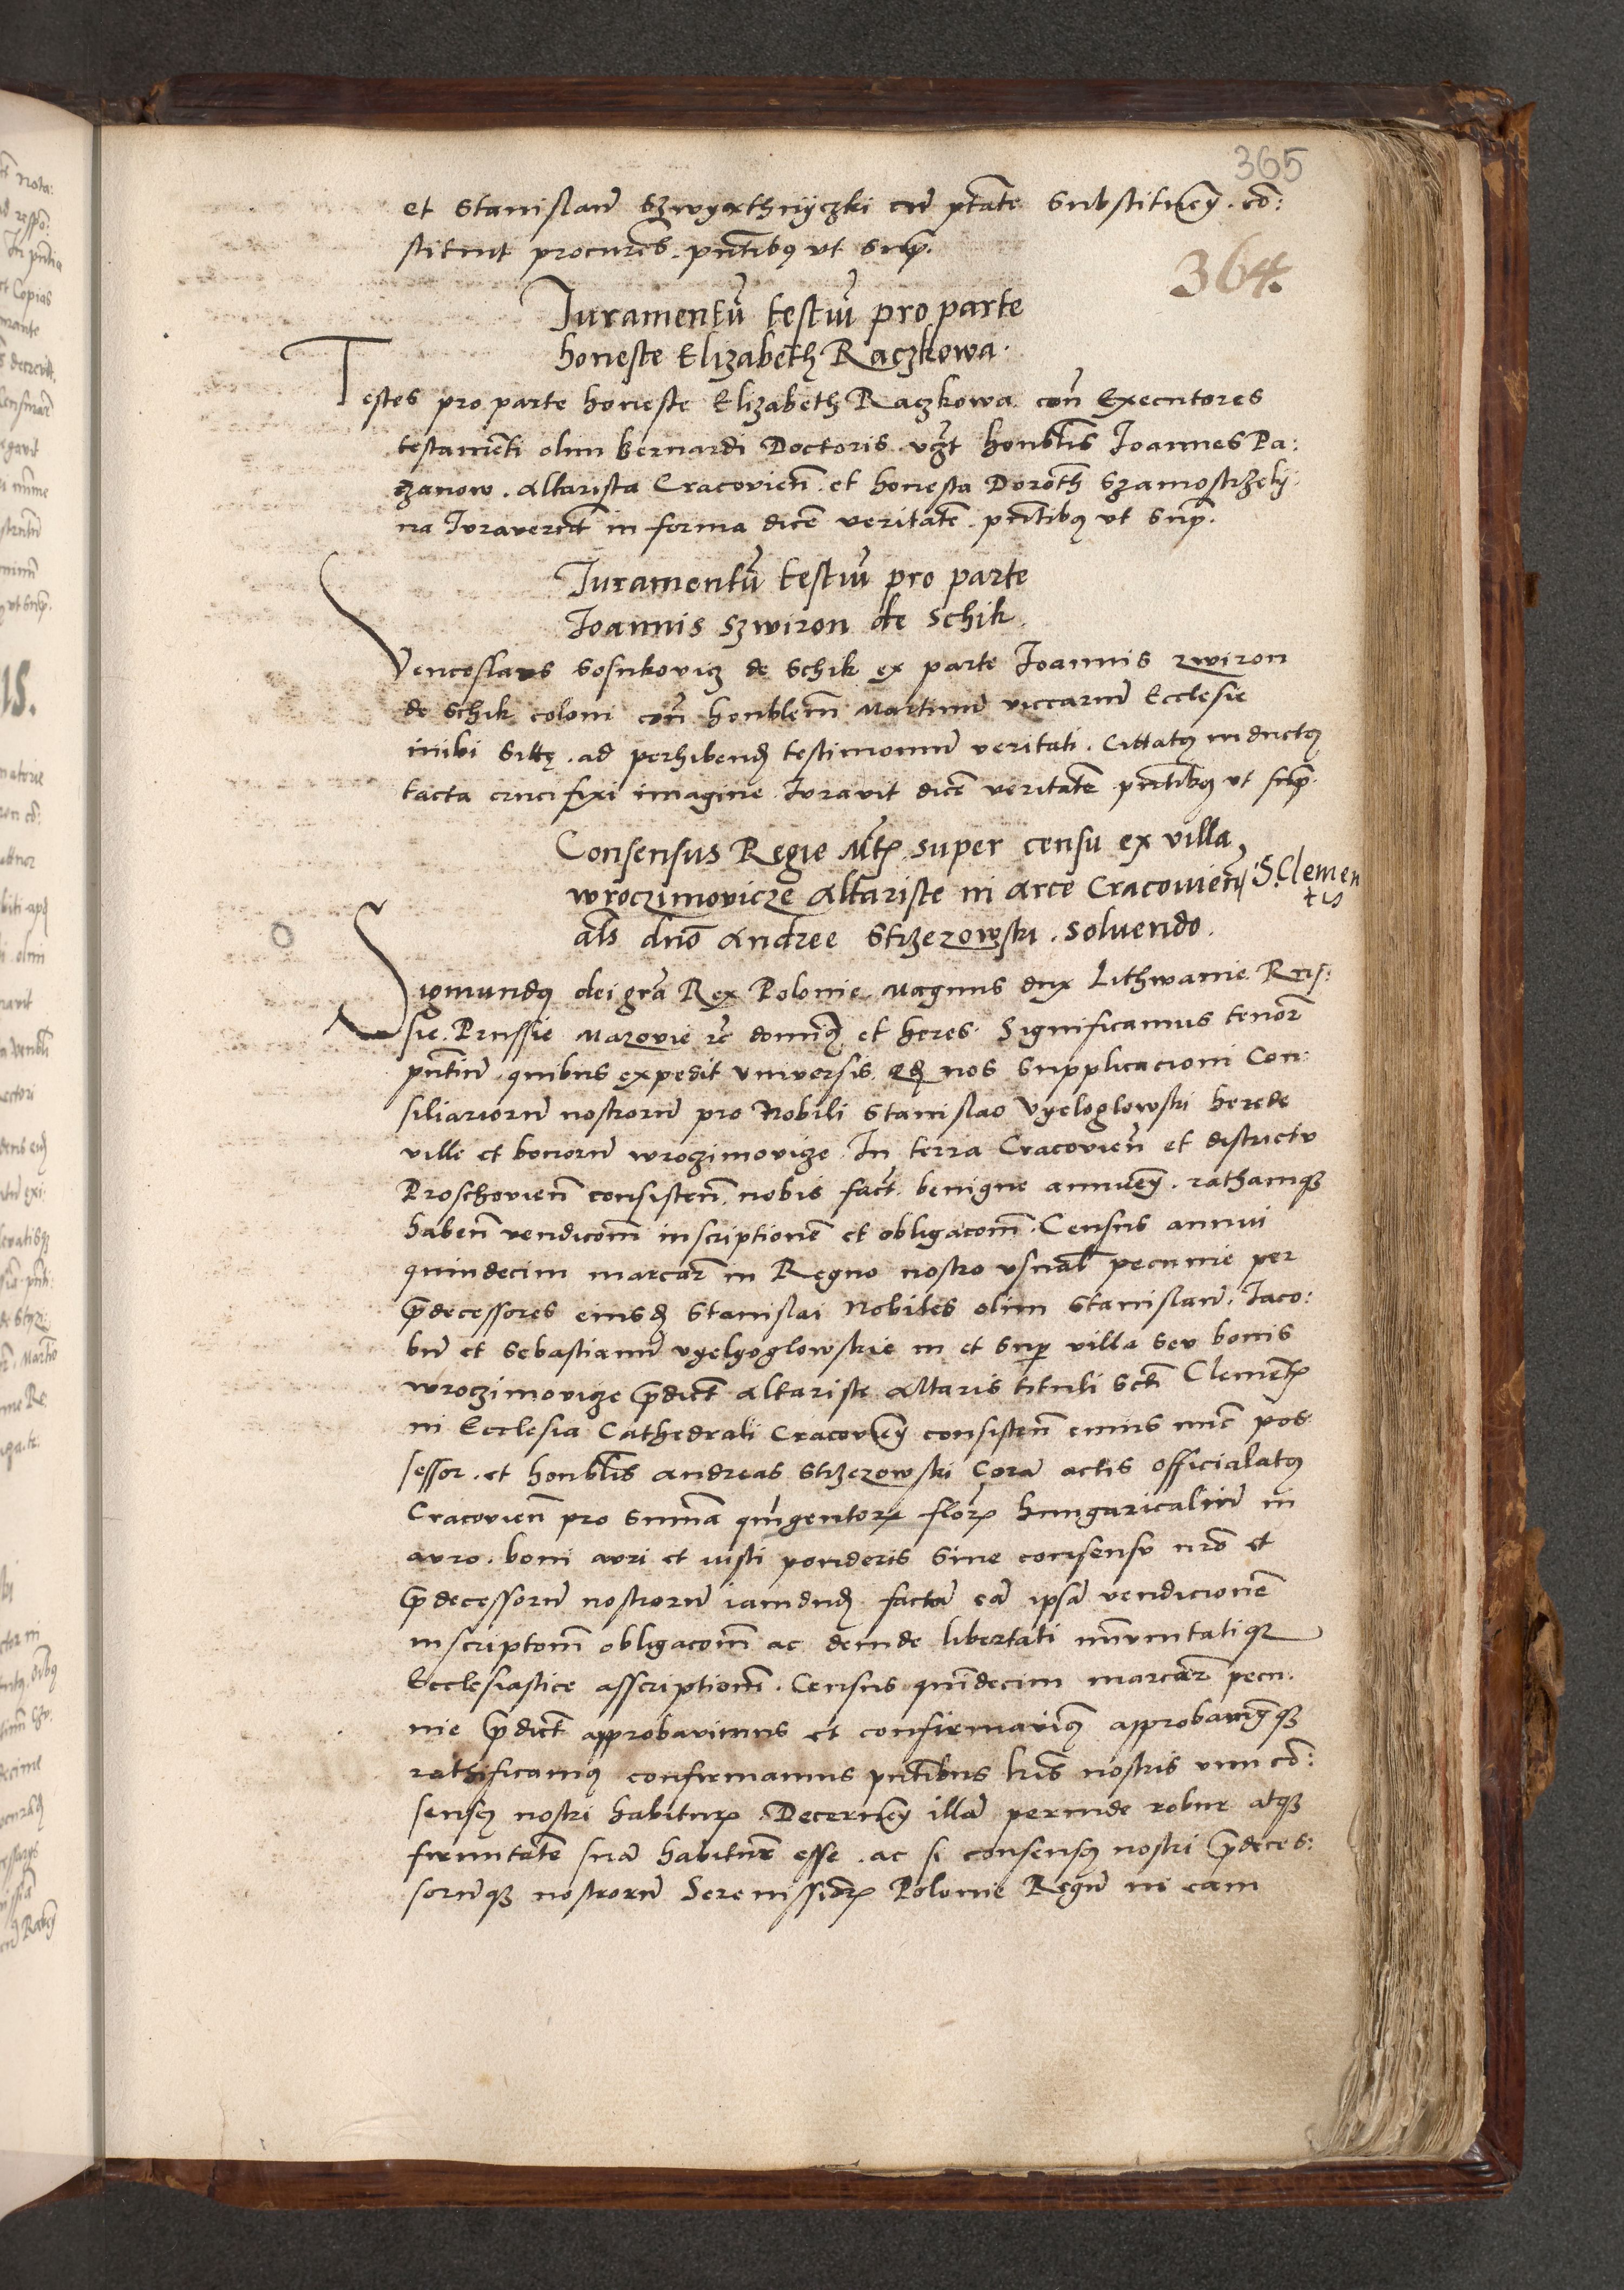 365
et Stanislaū Szwyrthnyczki cū ptāte Substituen̄. cō:
stituit procurēs. pn̄tibꝰ vt Supꝛ.
364.
Iuramentū testiū pro parte
honeste Elizabeth Raczkowa.
Testes pro parte honeste Elizabeth Raczkowa con̄ Executores
testamēti olim Bernardi Doctoris. vꝫt honblīs Joannes Pa:
czanow. Altarista Cracovien̄. et honesta Doroth Szamostrzely
na Iuraverūt in forma dicē veritatē. pn̄tibꝰ vt Supꝛ.
Iuramentū testiū pro parte
Joannis Szwiron de Schik.
Venceslaus Sosnkovicz de Schik ex parte Joannis zwiron
de Schik coloni con̄ honblem̄ Martinū viccariū Ecclesie
inibi ad perhibend̄ testimoniū veritati. Cittatꝰ inductꝰ
tacta crucifixi imagine Iuravit dicē veritatē pn̄tibꝰ vt supꝛ.
Consensus Regie Mtꝭ super censu ex villa
wroczimovicze Altariste in arce Cracovien̄ S. Clemen
tis
als dn̄o Andree Strzezowski. Soluendo.
Sigmundꝰ dei grā Rex Polonie. Magnus dux Lithwanie Rus:
sie. Prussie Mazovie ꝛc̄ dominꝰ et heres. Significamus tenor̄
pn̄tiū. quibus expedit vniversis. qd nos Supplicacioni Con:
siliariorū nostrorū pro Nobili Stanislao Vyeloglowski herede
ville et bonorū wroczimovicze. In terra Cracovien̄ et districtu
Proschovien̄ consisten̄. nobis fact̄. benigne annuen̄. rathamqꝫ
haben̄ vendicōm inscriptionē et obligacōm. Census annui
quindecim marcar̄ in Regno nostro vsual̄ pecunie per
p̄decessores eiusd̄ Stanislai Nobiles olim Stanislaū. Jaco:
bū et Sebastianū Vyelyoglowskie in et sup̄ villa Seu bonis
wroczimovicze p̄dict̄ altariste Altaris tituli Scti Clemētꝭ
in Ecclesia Cathedrali Cracovien̄ consisten̄ cuius nūc pos
sessor. et honblīs Andreas Strzezowski Corā actis officialatꝰ
Cracovien̄ pro sūma qn̄gentorꝝ florꝝ hungaricaliū in
auro. boni auri et iusti ponderis Sine consensu nrō et
p̄decessorū nostrorū iamdud̄ factā eā ipsā vendicionē
inscriptōm obligacōm ac deinde libertati īmunitatiqꝫ
Ecclesiastice asscriptionē. Census quīdecim marcar̄ pecu
nie p̄dict̄ approbavimus et confirmavimꝰ approbamꝰqꝫ
rathificamꝰ confirmamus pn̄tibus lr̄is nostris vim cō:
sensꝰ nostri habiturꝭ. Decernen̄ illā perinde robur atqꝫ
firmitatē suā habiturū esse. ac si consensꝰ nostri p̄deces:
sorūqꝫ nostrorū Serenissiōrꝝ Polonie Regū in eam